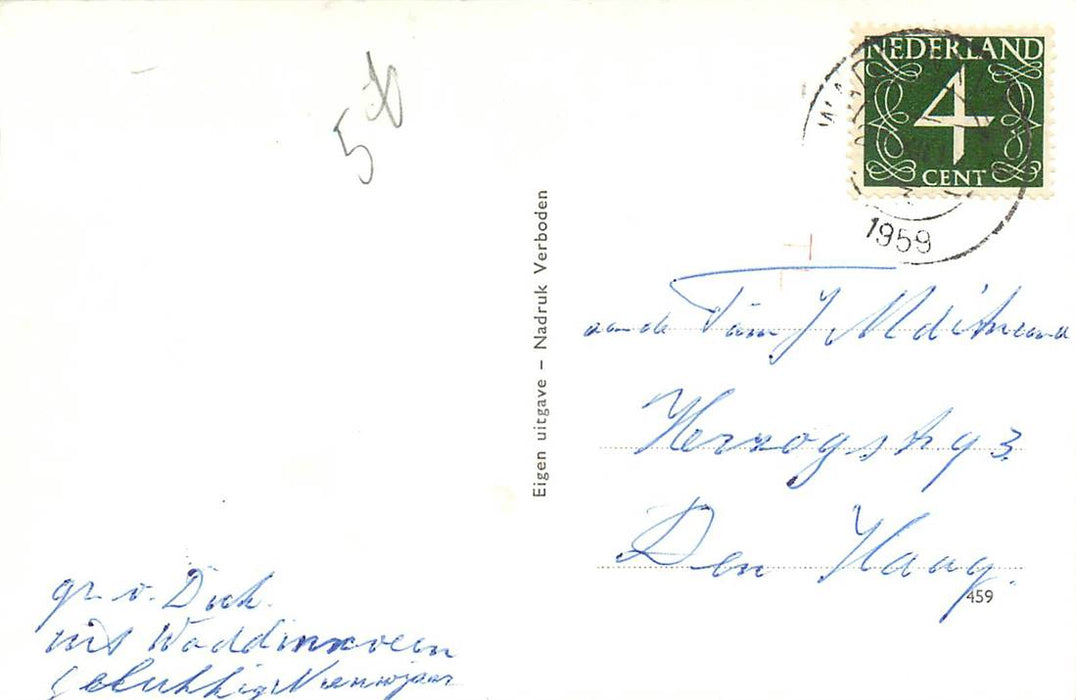 NEDERLAND
4
CENT
1959
5
Eigen uitgave – Nadruk Verboden
aan de Fam J
93
Den Haag.
459
gr. v. Dick.
uit Waddinxveen
gelukkig Nieuwjaar